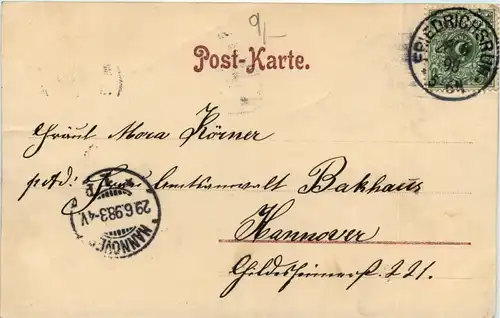 9/-
Post-Karte.
FRIEDRICHSRUH
98
Fräul. Mora Körner
p. Ad: Frau Amtsanwalt Bakhaus
Hannover
Hildesheimerstr. 221.
HANNOVER
29.6.98.3-4V.